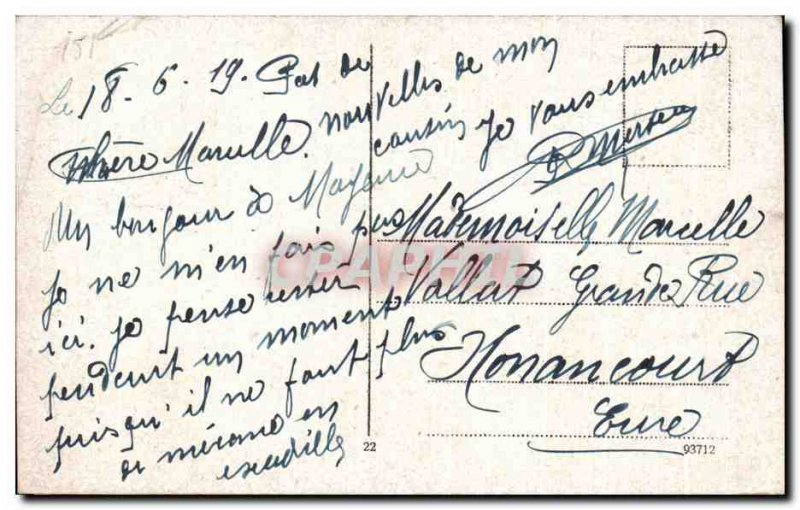 Le 18.6.19. Pas de
nouvelles de mon
cousin Je vous embrasse
Chère Marcelle.
Un bonjour de Mayence
Je ne m'en fais pas
ici. Je pense rester
pendant un moment
puisqu'il ne faut plus
de mécano en
escadrille
Mademoiselle Marcelle
Vallat Grande Rue
Nonancourt
Eure
22
93712
CPAPHIL